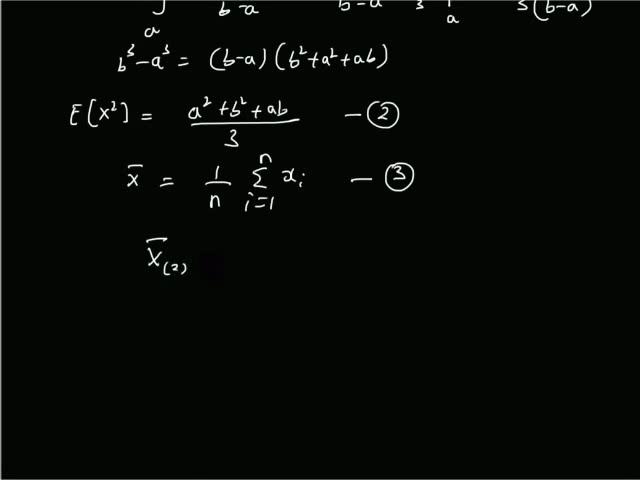 ∫ₐ b-a b-a 3 a 3(b-a)
b³-a³ = (b-a) (b²+a²+ab)
E[X²] = (a²+b²+ab)/3 — ②
x̄ = 1/n Σᵢ₌₁ⁿ xᵢ — ③
X̄₍₂₎